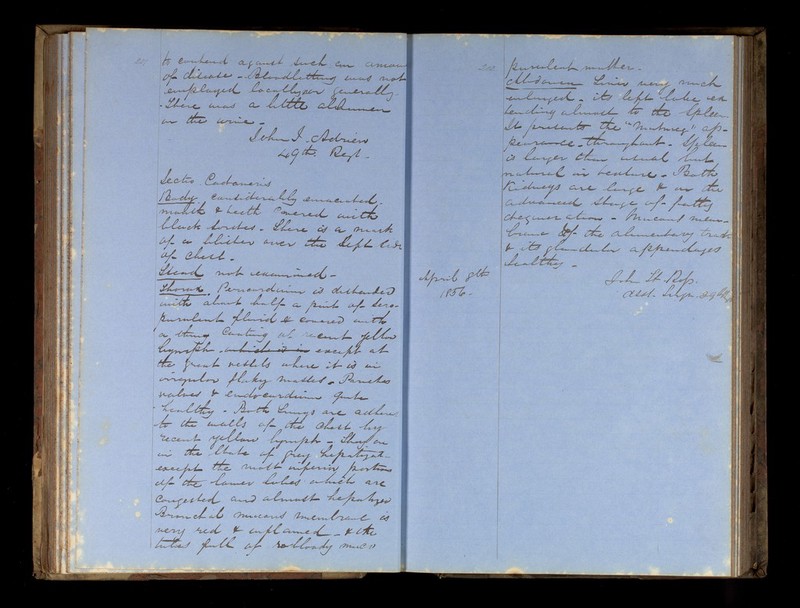 to contend against such an amount
of disease - Bloodletting was not
employed locally or generally.
There was a little albumen
in the urine -
John J. Adrien
49th Regt.
Sectio Cadaveris
Body. considerably emaciated
mouth & teeth covered with
black sordes. There is a mark
of a blister over the left side
of chest.
Head not examined -
Thorax. Pericardium is distended
with about half a pint of sero-
purulent fluid & covered with
a thin coating of recent yellow
lymph - which is in except at
the great vessels where it is in
irregular flaky masses. Parietes
valves & endocardium quite
healthy. Both Lungs are adherent
to the walls of the chest by
recent yellow lymph - They are
in the state of grey hepatizat-
except the most inferior portions
of the lower lobes which are
congested and almost hepatized
Bronchial mucous membrane is
very red & inflamed - & the
tubes full of bloody muco
purulent matter.
Abdomen Liver very much
enlarged - its left lobe ex
tending almost to the Spleen
It presents the "nutmeg" ap-
pearance throughout. Spleen
is larger than usual but
natural in texture - Both
Kidneys are large & in the
advanced stage of fatty
degeneration - Mucous mem-
brane of the alimentary tract
& its glandular appendages
healthy -
April 8th
1856.
John H.
Asst. Surgn. 49th